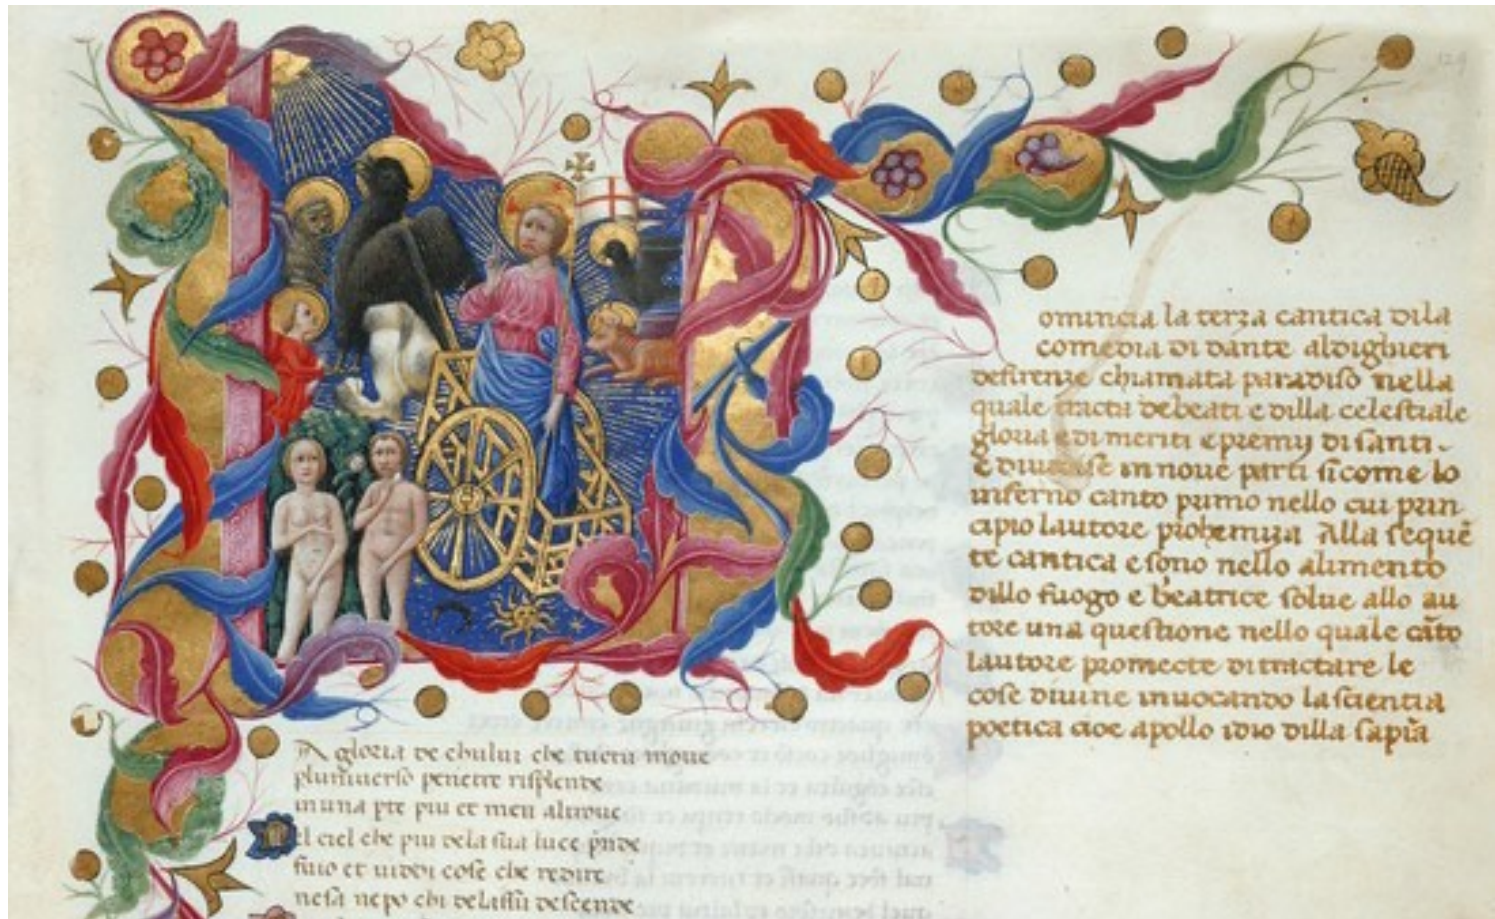 omincia la terza cantica dila
comedia di dante aldighieri
defirenze chiamata paradiso nella
quale tracta debeati e dilla celestiale
gloria e di meriti e premij di santi.
E diuidese in noue parti si come lo
inferno canto primo nello cui prin
cipio lautore prohemiza Alla seque
te cantica e sono nello alimento
dillo fuogo e beatrice solue allo au
tore una questione nello quale cāto
lautore promecte di tractare le
cose diuine inuocando la scientia
poetica cioe apollo idio dilla sapia
A gloria de chului che tucto moue
pluniuerso penetre risplente
in una pte piu et men altroue
el ciel che piu dela sua luce pnde
fuio et uiddi cose che redire
nesa nepo chi delassu descende